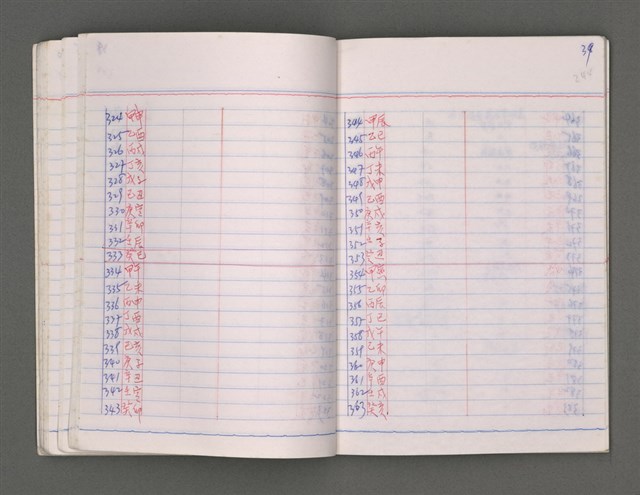 324 甲申
325 乙酉
326 丙戌
327 丁亥
328 戊子
329 己丑
330 庚寅
331 辛卯
332 壬辰
333 癸巳
334 甲午
335 乙未
336 丙申
337 丁酉
338 戊戌
339 己亥
340 庚子
341 辛丑
342 壬寅
343 癸卯
344 甲辰
345 乙巳
346 丙午
347 丁未
348 戊申
349 己酉
350 庚戌
351 辛亥
352 壬子
353 癸丑
354 甲寅
355 乙卯
356 丙辰
357 丁巳
358 戊午
359 己未
360 庚申
361 辛酉
362 壬戌
363 癸亥